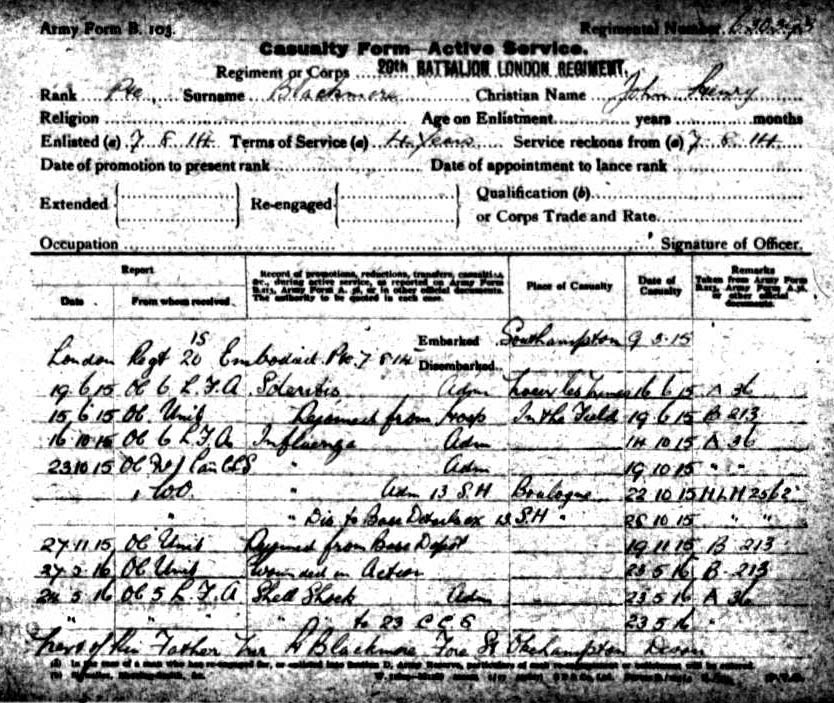 Army Form B. 103.
Regimental Number
Casualty Form—Active Service.
Regiment or Corps 20th BATTALION LONDON REGIMENT.
Rank Pte Surname Blackmore Christian Name John Henry
Religion Age on Enlistment years months
Enlisted (a) 7 8 14 Terms of Service (a) 4 Years Service reckons from (a) 7 8 14
Date of promotion to present rank Date of appointment to lance rank
Extended Re-engaged Qualification (b)
or Corps Trade and Rate
Occupation Signature of Officer.
Report Record of promotions, reductions, transfers, casualties, &c., during active service, as reported on Army Form B.213, Army Form A. 36, or in other official documents. The authority to be quoted in each case. Place of Casualty Date of Casualty Remarks Taken from Army Form B.213, Army Form A.36, or other official documents.
Date From whom received
Embarked Southampton 9 3 15
London Regt 20 Embodied Pte 7 8 14 Disembarked
19 6 15 OC 6 L.F.A Adm 16 6 15 A 36
15 6 15 OC Unit Rejoined from Hosp In the Field 19 6 15 B 213
16 10 15 OC 6 L.F.A Influenza Adm 14 10 15 A 36
23 10 15 OC " Adm 19 10 15 " "
" " Adm 13 S.H Boulogne 22 10 15
" " Dis to Base Details ex 13 S.H " 25 10 15 " "
27 11 15 OC Unit Rejoined from Base Depot 19 11 15 B 213
27 5 16 OC Unit Wounded in Action 23 5 16 B 213
24 5 16 OC 5 L.F.A Shell Shock Adm 23 5 16 A 36
" " " " " to 23 C C S 23 5 16 "
Next of Kin Father Blackmore Fore St Okehampton Devon